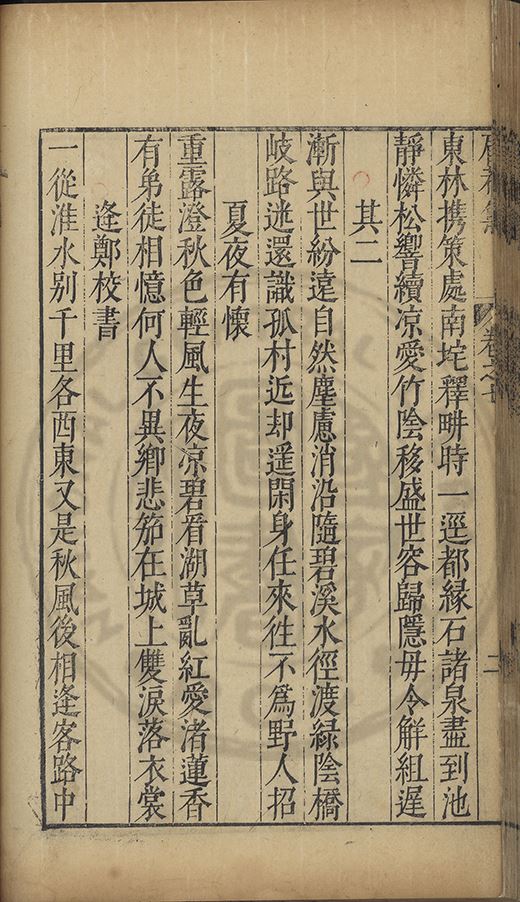 卷之七
二
東林携策處南垞釋畊時一逕都緣石諸泉盡到池
靜憐松響續凉愛竹陰移盛世容歸隱毋令解組遲
其二
漸與世紛遠自然塵慮消沿隨碧溪水徑渡綠陰橋
岐路迷還識孤村近却遥閑身任來往不爲野人招
夏夜有懷
重露澄秋色輕風生夜凉碧看湖草亂紅愛渚蓮香
有弟徒相憶何人不異鄉悲笳在城上雙淚落衣裳
逢鄭校書
一從淮水别千里各西東又是秋風後相逢客路中